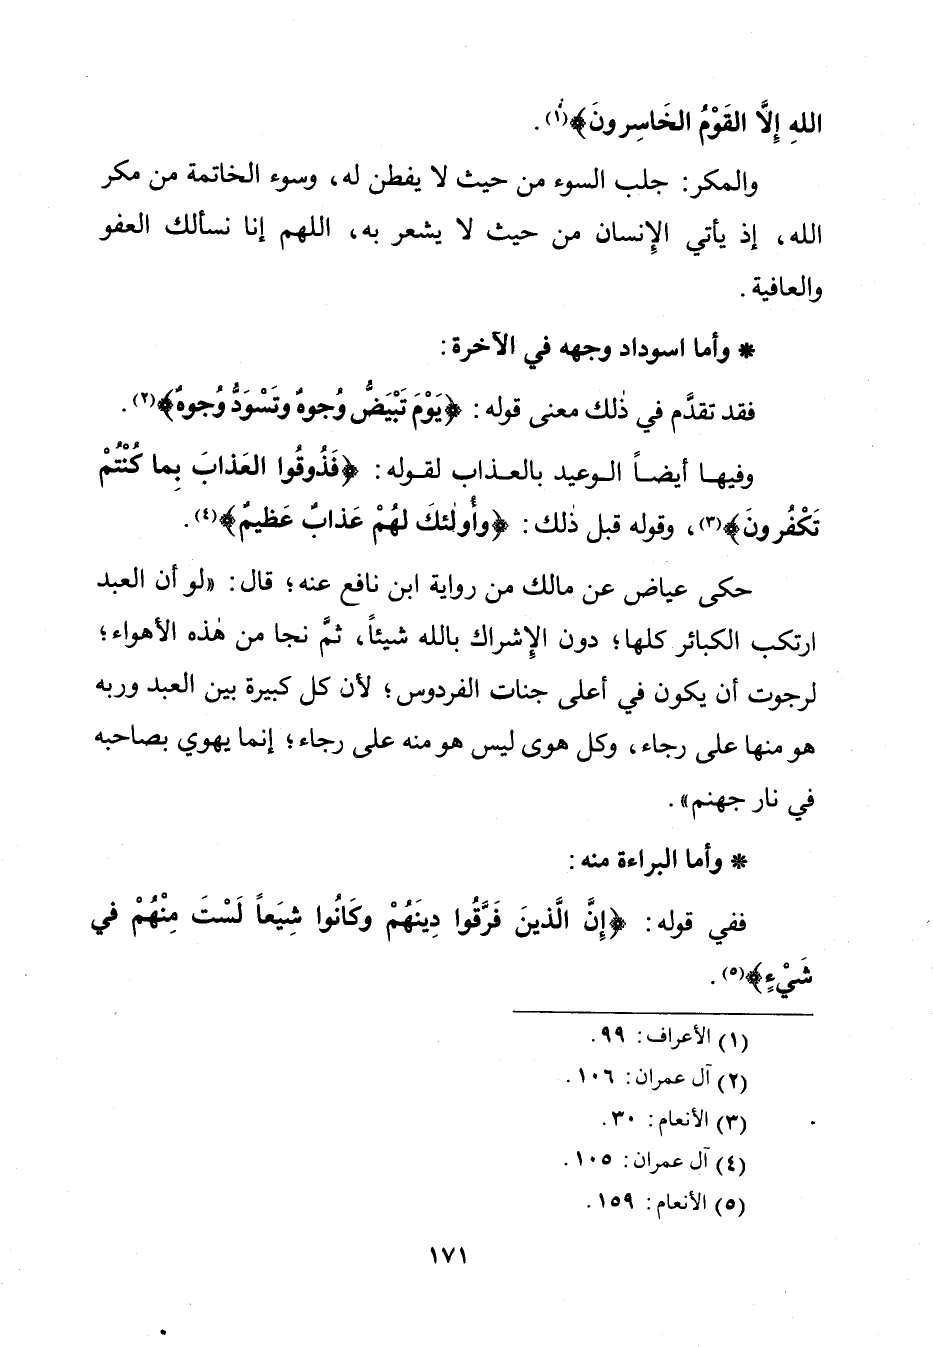 اللهِ إِلَّا القَوْمُ الخَاسِرونَ﴾(١).
والمكر: جلب السوء من حيث لا يفطن له، وسوء الخاتمة من مكر
الله، إذ يأتي الإنسان من حيث لا يشعر به، اللهم إنا نسألك العفو
والعافية.
* وأما اسوداد وجهه في الآخرة:
فقد تقدَّم في ذٰلك معنى قوله: ﴿يَوْمَ تَبْيَضُّ وُجوهٌ وتَسْوَدُّ وُجوهٌ﴾(٢).
وفيها أيضاً الوعيد بالعذاب لقوله: ﴿فَذُوقُوا العَذابَ بِما كُنْتُمْ
تَكْفُرونَ﴾(٣)، وقوله قبل ذٰلك: ﴿وأُولٰئكَ لهُمْ عَذابٌ عَظيمٌ﴾(٤).
حكى عياض عن مالك من رواية ابن نافع عنه؛ قال: «لو أن العبد
ارتكب الكبائر كلها؛ دون الإشراك بالله شيئاً، ثمَّ نجا من هٰذه الأهواء؛
لرجوت أن يكون في أعلى جنات الفردوس؛ لأن كل كبيرة بين العبد وربه
هو منها على رجاء، وكل هوى ليس هو منه على رجاء؛ إنما يهوي بصاحبه
في نار جهنم».
* وأما البراءة منه:
ففي قوله: ﴿إِنَّ الَّذينَ فَرَّقُوا دِينَهُمْ وكَانُوا شِيَعاً لَسْتَ مِنْهُمْ في
شَيْءٍ﴾(٥).
(١) الأعراف: ٩٩.
(٢) آل عمران: ١٠٦.
(٣) الأنعام: ٣٠.
(٤) آل عمران: ١٠٥.
(٥) الأنعام: ١٥٩.
١٧١